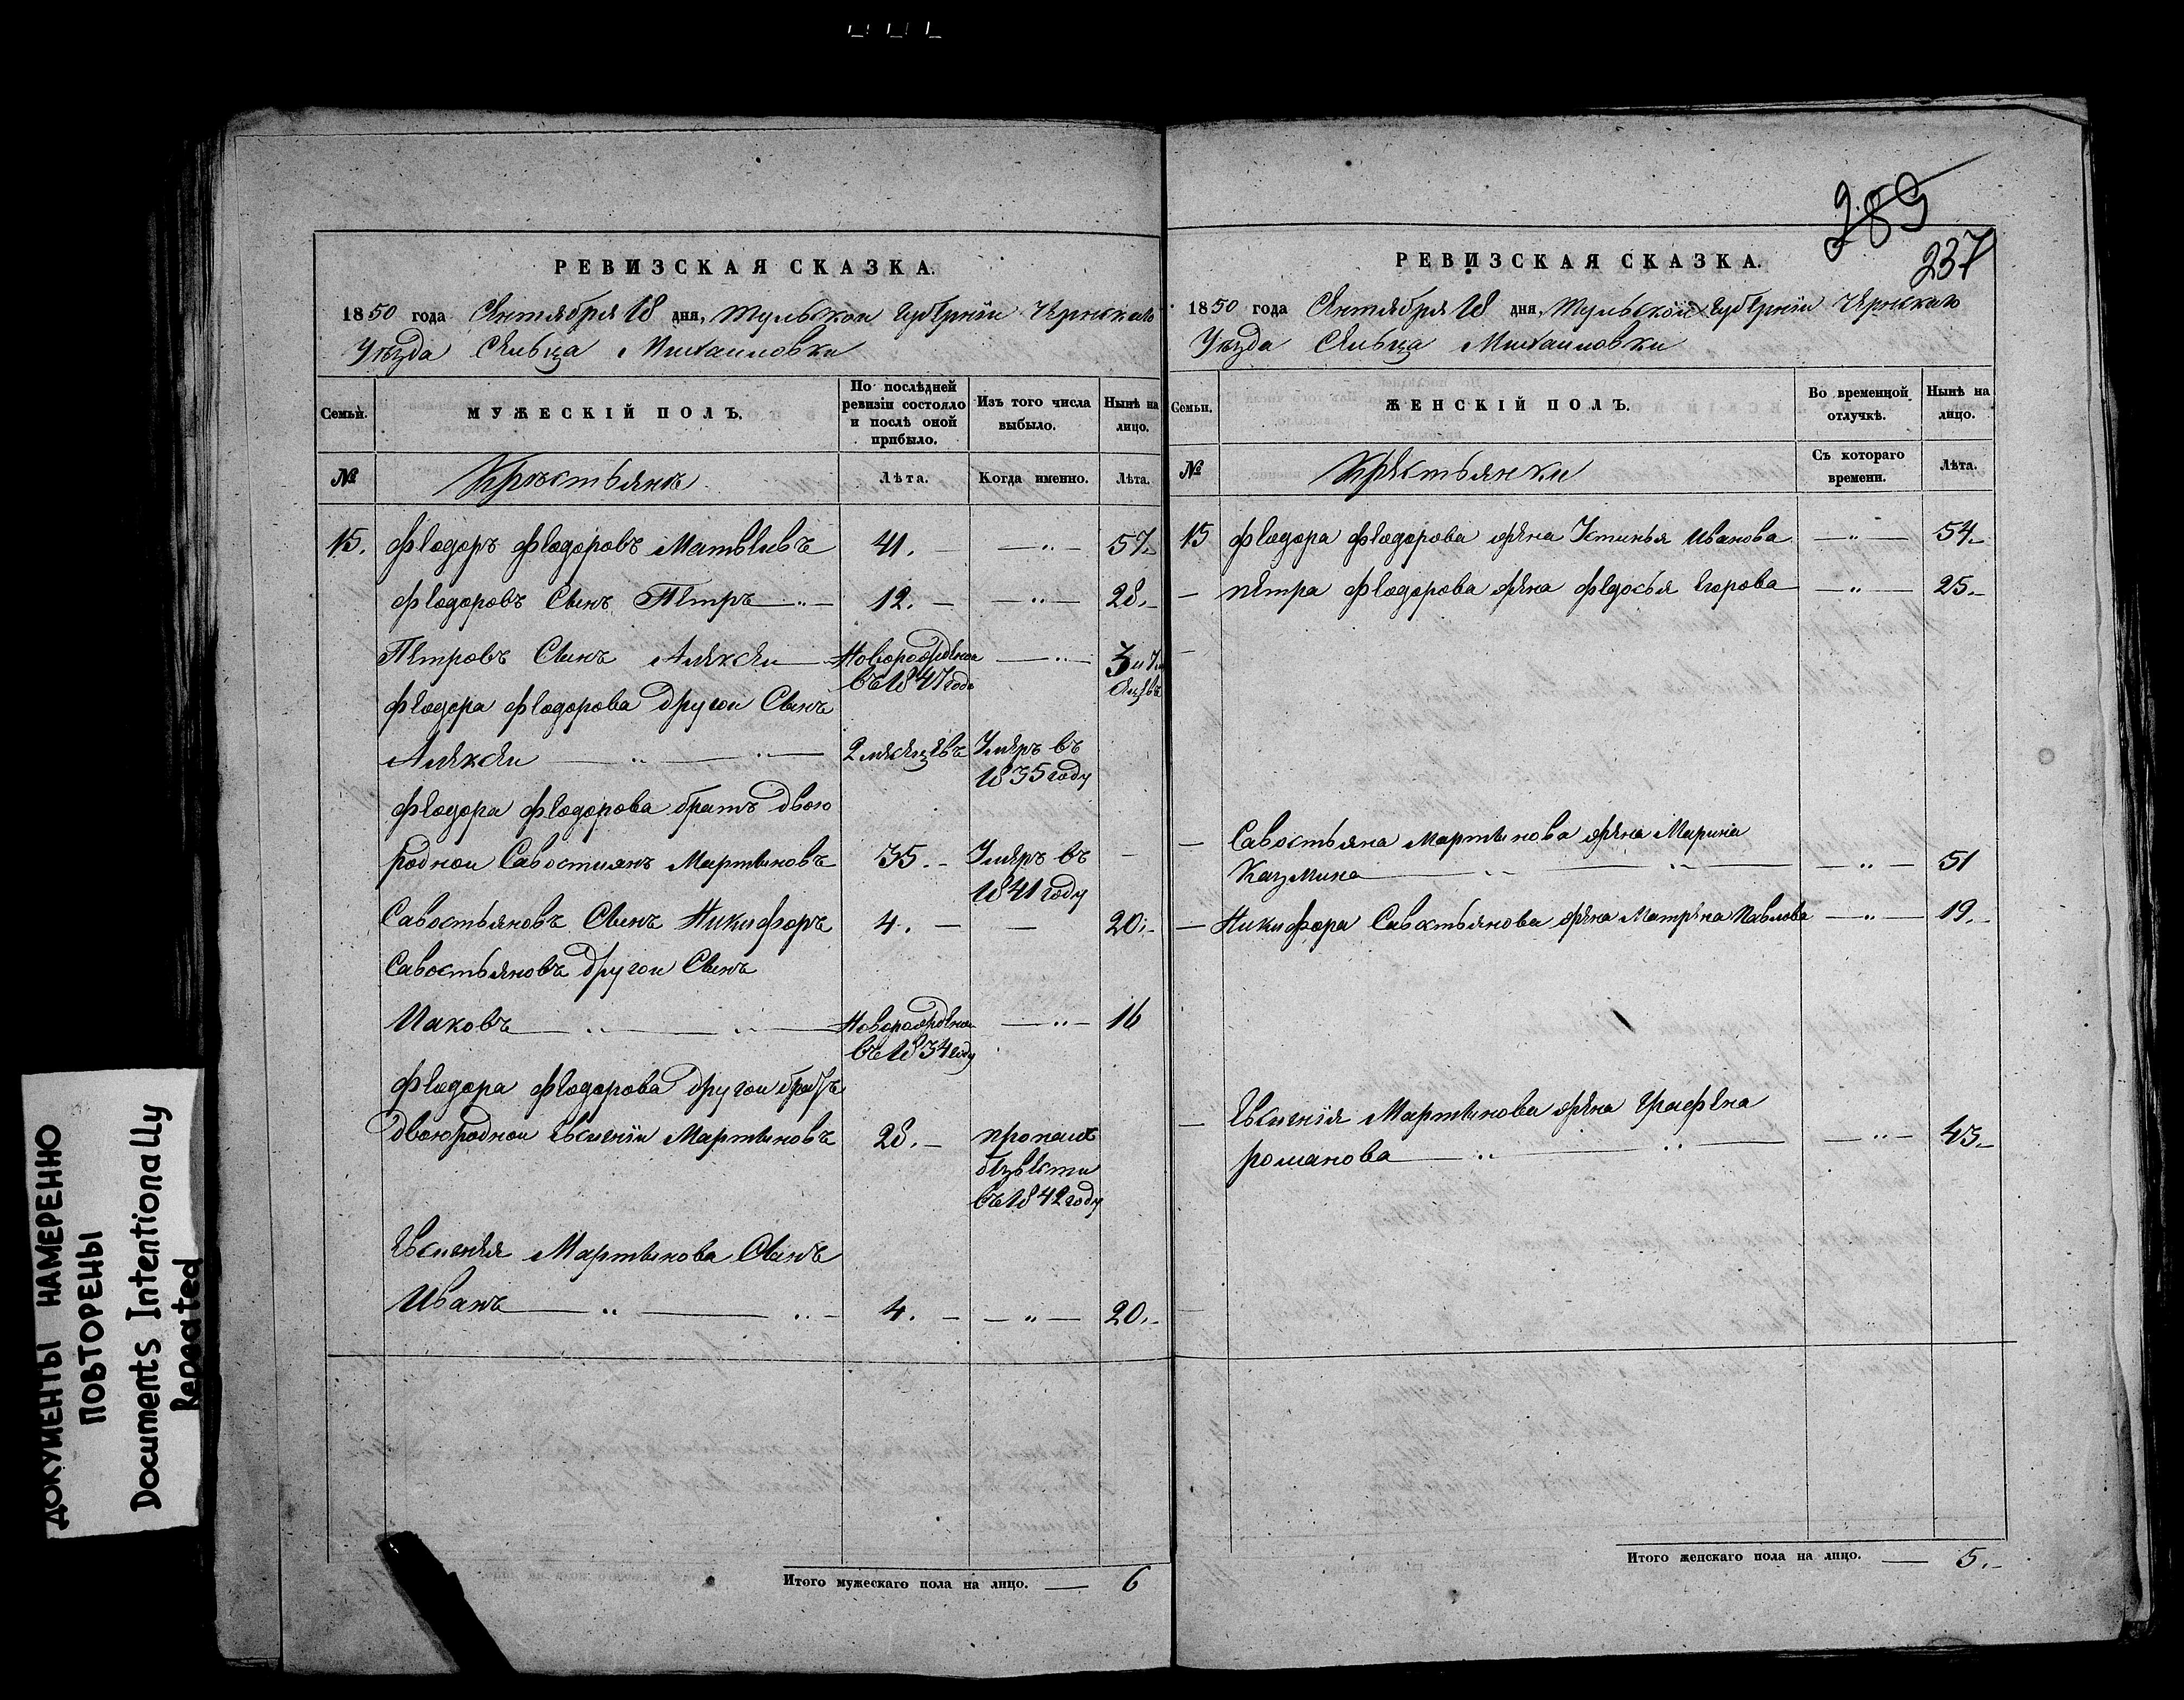 ДОКУМЕНТЫ НАМЕРЕННО
ПОВТОРЕНЫ
Documents Intentionally
Repeated
РЕВИЗСКАЯ СКАЗКА.
1850 года Сентября 18 дня, Тульской Губернiи Чернскаго
Уѣзда Сельца Михаиловки
Семьи.
МУЖЕСКІЙ ПОЛЪ.
По послѣдней
ревизіи состояло
и послѣ оной
прибыло.
Изъ того числа
выбыло.
Нынѣ на
лицо.
№
Крестьянъ
Лѣта.
Когда именно.
Лѣта.
15. Федоръ Федоровъ Матвѣевъ 41. — — „ — 57.
Федоровъ Сынъ Петръ — „ — 12. — — „ — 28.
Петровъ Сынъ Алексеи — Новорожденои — „ — 3 и 7
въ 1847 годе
Федора Федорова другои Сынъ
Алексеи — „ — „ — 2 месяцевъ Умеръ въ
1835 году
Федора Федорова братъ двою
родной Савостиянъ Мартыновъ 35. — Умеръ въ —
1841 году
Савостьяновъ Сынъ Никифоръ 4. — — 20.
Савостьяновъ другои Сынъ
Иаковъ — „ — „ — Новорожденои — „ — 16
въ 1834 году
Федора Федорова другои братъ
двоюродной Евсигнiи Мартыновъ 28. — пропалъ
безвести
въ 1842 году
Евсигнея Мартынова Сынъ
Иванъ — „ — „ — 4. — — „ — 20.
Итого мужескаго пола на лицо. — 6
289
237
РЕВИЗСКАЯ СКАЗКА.
1850 года Сентября 18 дня, Тульской Губернiи Чернскаго
Уѣзда Сельца Михаиловки
Семьи.
ЖЕНСКІЙ ПОЛЪ.
Во временной
отлучкѣ.
Нынѣ на
лицо.
№
Крестьянки
Съ котораго
времени.
Лѣта.
15 Федора Федорова жена Устинья Иванова — „ — 54.
— Петра Федорова жена Федосья Егорова — „ — 25.
— Савостьяна Мартынова жена Марина
Казмина — „ — „ — — „ — 51
— Никифора Савостьянова жена Матрена Павлова — „ — 19.
— Евсигнiя Мартынова жена Графена
романова — „ — „ — — „ — 43.
Итого женскаго пола на лицо. — 5.